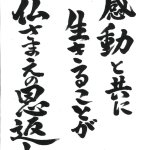 感動と共に
生きることが
仏さまえの恩返し